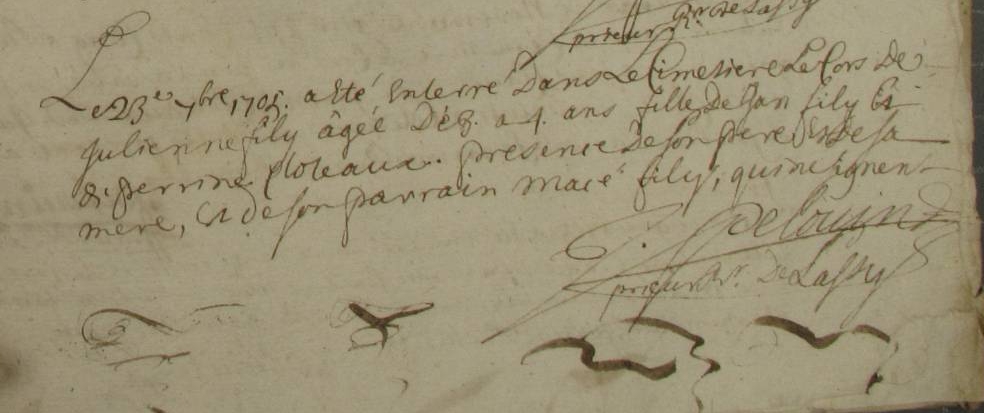 prieur Rr De Lassy
Le 23e 7bre 1705. a eté enterré Dans Le Cimetiere Le Cors De
Julienne fily âgée De 3. a 4. ans fille De Jan fily et
de perrine ploteaux. presence De son pere et De sa
mere, et De son parrain Macé fily, qui ne signent
prieur Rr. De Lassy